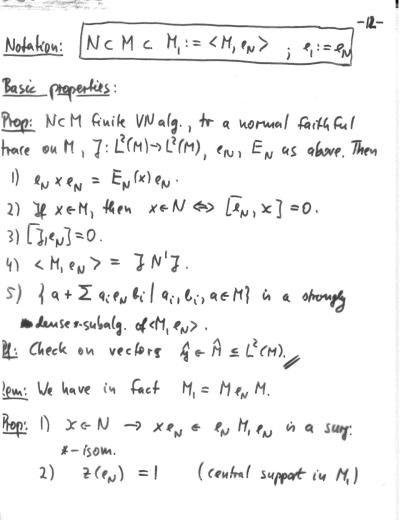 -12-
Notation: N ⊂ M ⊂ M₁ := <M, e_N> ; e₁ := e_N
Basic properties:
Prop: N ⊂ M finite VN alg., tr a normal faithful
trace on M, J: L²(M) → L²(M), e_N, E_N as above. Then
1) e_N x e_N = E_N(x) e_N.
2) If x ∈ M, then x ∈ N ⇔ [e_N, x] = 0.
3) [J, e_N] = 0.
4) <M, e_N> = J N' J.
5) { a + Σ a_i e_N b_i | a_i, b_i, a ∈ M } is a strongly
dense *-subalg. of <M, e_N>.
Pf: Check on vectors ŷ ∈ M̂ ⊆ L²(M).
Rem: We have in fact M₁ = M e_N M.
Prop: 1) x ∈ N → x e_N ∈ e_N M₁ e_N is a surj.
*-isom.
2) z(e_N) = 1 (central support in M₁)